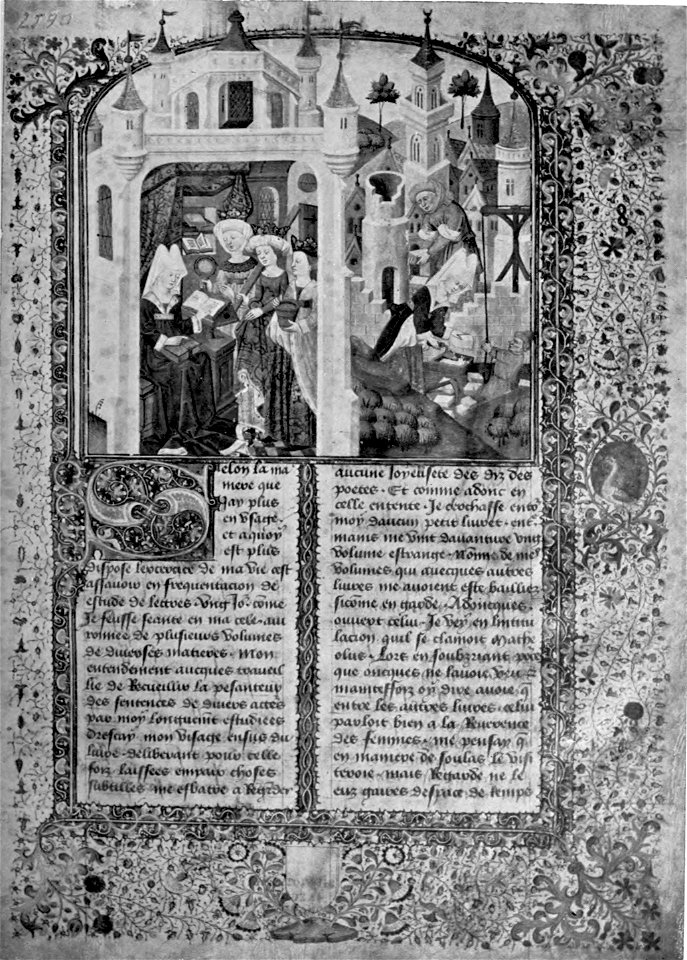 Selon la ma
niere que
Jay plus
en usage
et aquoy
est plus
dispose lexercite de ma vie cest
assavoir en frequentacion de
estude de lectres · Ung Jo. come
Je feusse seante en ma cele · au
ronnee de plusieurs volumes
de diverses matieres · Mon
entendement avecques traveil
lie de Recueillir la pesanteur
des sentences de divers actes
par moy longuement estudiees
dressay mon visage ensus du
livre · deliberant pour celle
foiz laissees empaix choses
subtilles me esbatre a Regrder
aucune Joyeusete des diz des
poetes · Et comme adonc en
celle entente · Je cerchasse ento
moy daucun petit livret · ent.
mains me vint davanture ung
volume estrange · Nom̄e de mes
volumes qui avecques autres
livres me avoient este bailliez
sicome en garde · Adoncques ·
ouvert celui · Je vey en lintitu
lacion quil se clamoit Mathe
olus · Lors en soubzriant
que oncques ne lavoie veu &
mainteffoiz oy dire avoie q̄
entre les autres livres · celui
parloit bien a la Reverence
des femmes · me pensay q̄
en maniere de soulas le visi
teroie · mais Regarde ne le
euz gaires despace de temps